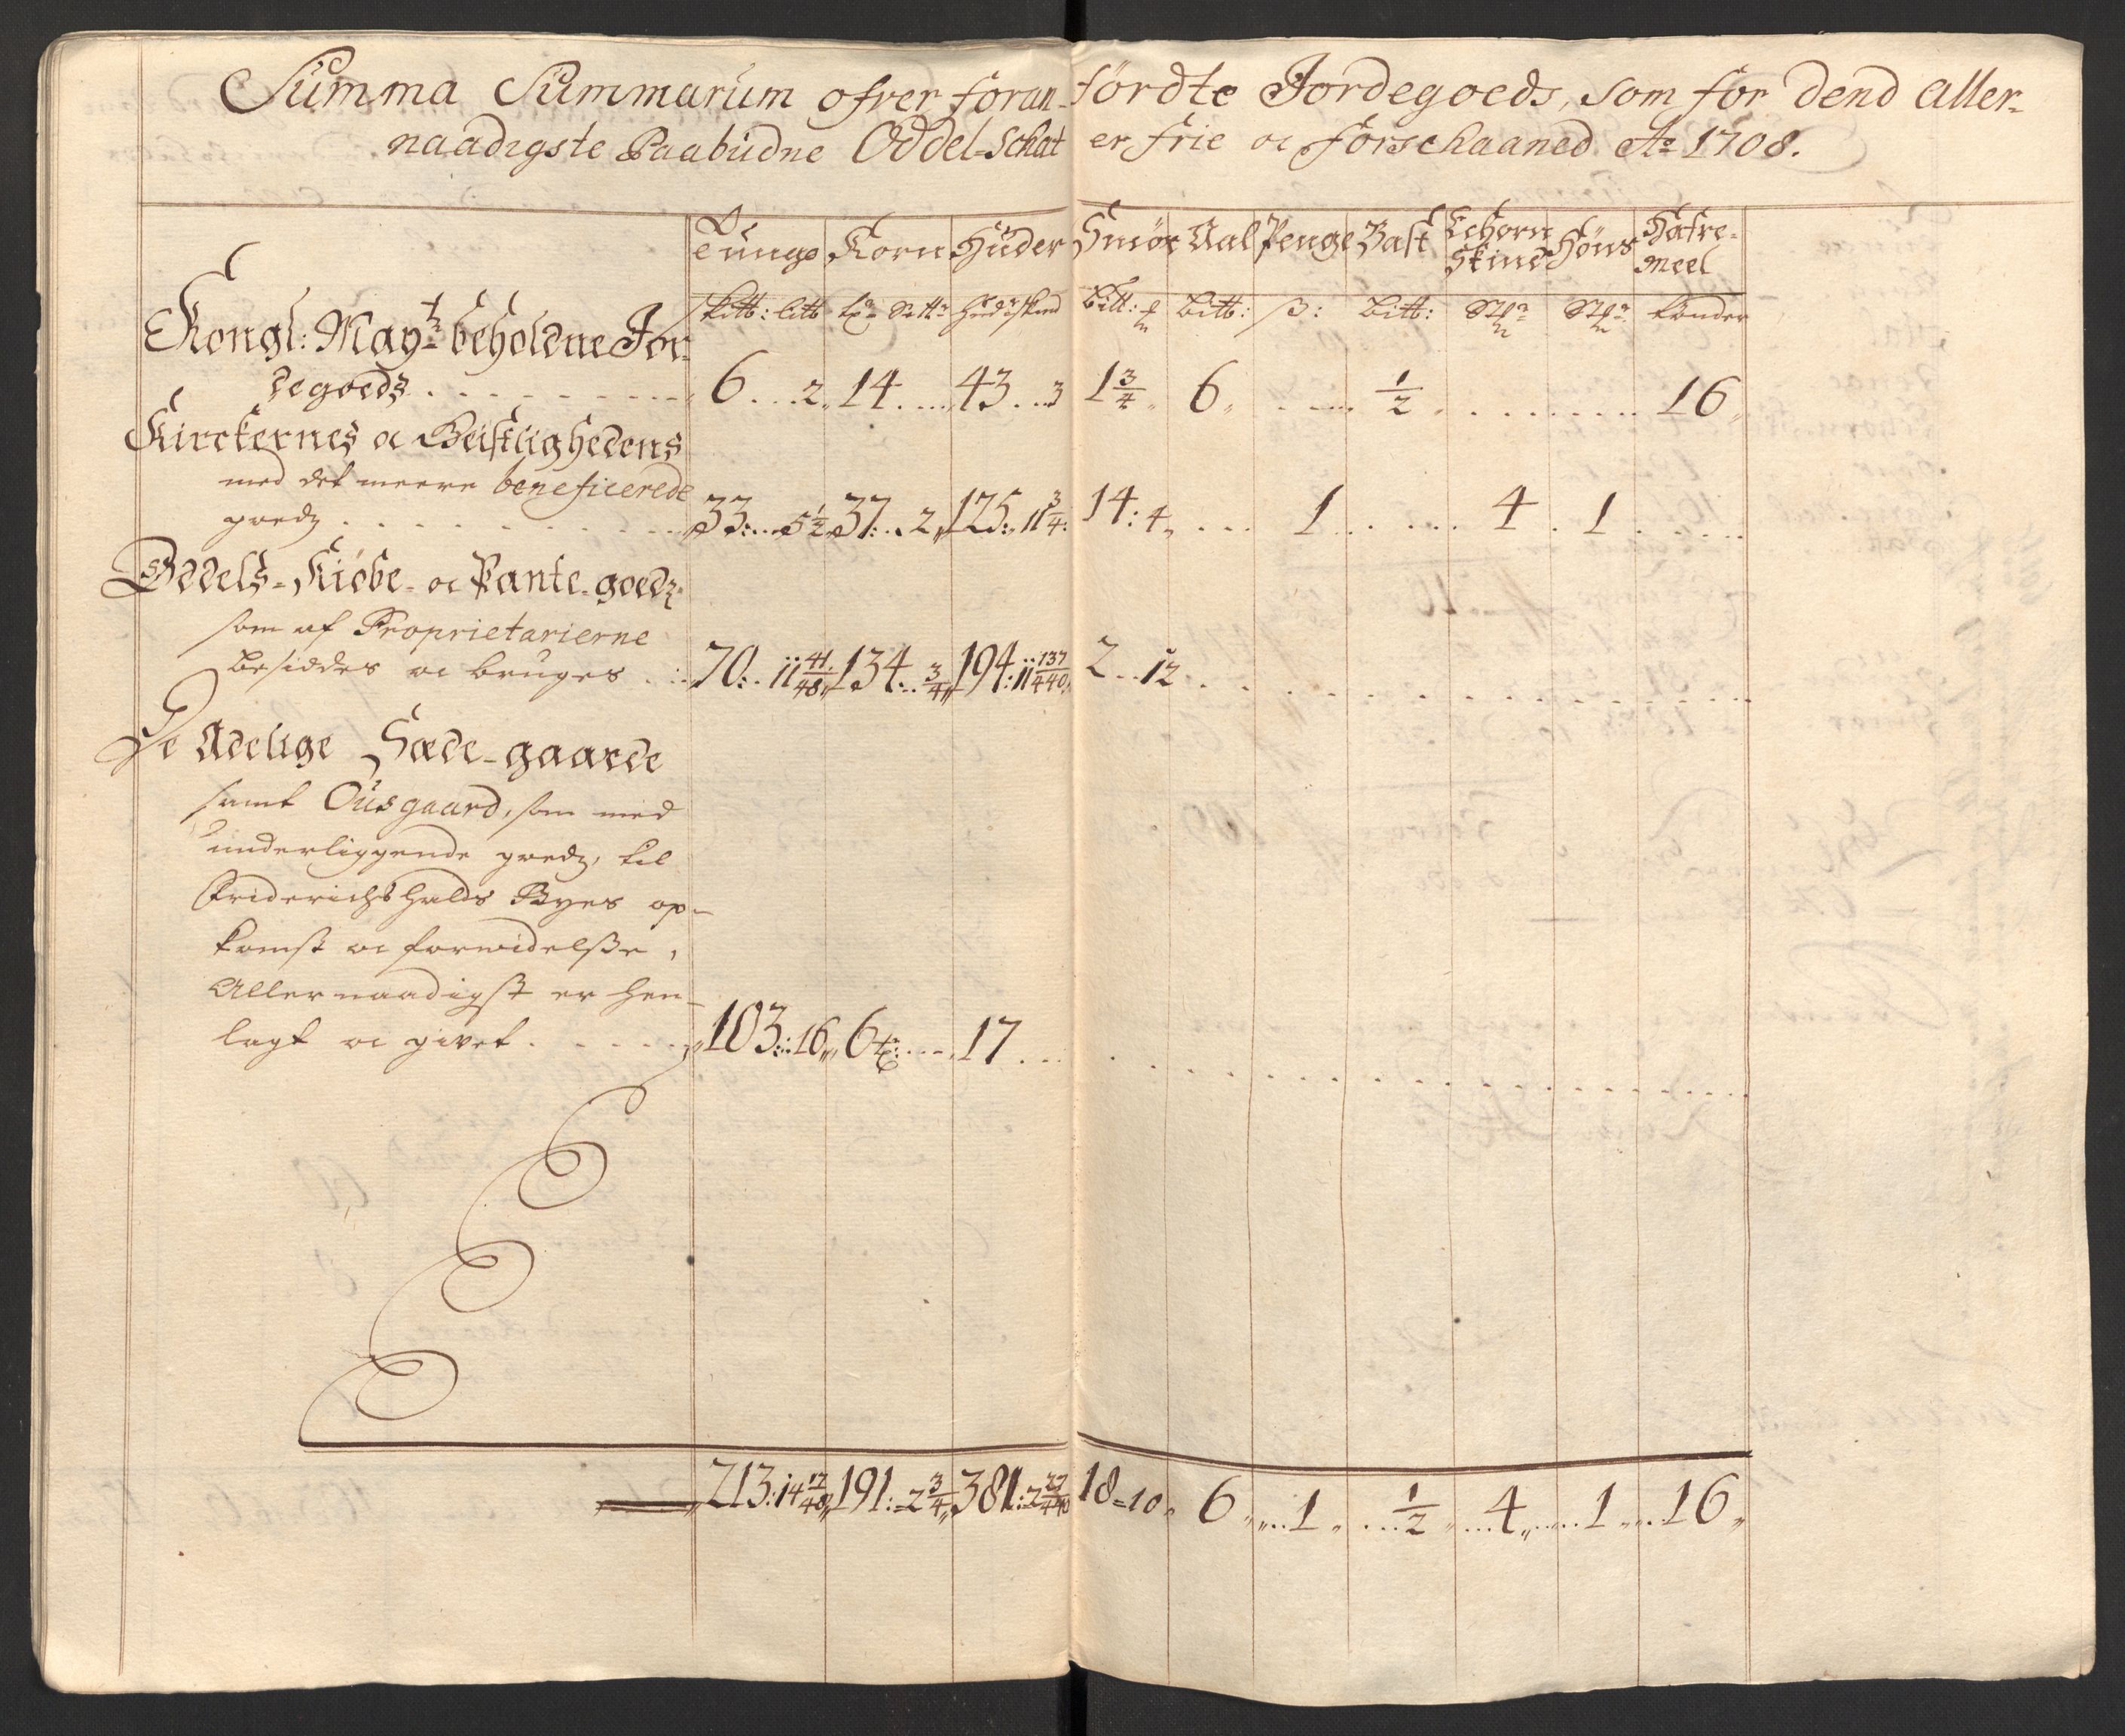 Summa Summarum ofver foran-fördte Jordegoeds, som for dend aller-
naadigste Paabudne Oddel-Schat er frie oc forschaaned Ao 1708.
Tunge Korn Huder Smör Aal Penge Bast Echorn Skind Höns Hafre-Meel
Bitt: Bitt: ß: Bitt: tönder
Kongl: Mayts beholdne Jor-
degoeds . . . 6 . . . 2 14 . . . 43 . . 3 1 3/4 6 . . . 1/2 . . . 16
Kirckernes oc Geistlighedens
med det meere beneficerede
goeds . . . 33: . . 5 1/2 37: . . 2 175: 11 3/4: 14: 4 . . . 1 . . . 4 . 1 . . .
Oddels-Kiöbe- oc Pante-goeds
som af Proprietarierne
besiddes oc bruges . . 70: . . 11 41/48 134 . . 3/4 194: 11 137/440 2 . . 12 . . .
De Adelige Sæde-gaarde
samt Ousgaard, som med
underliggende goeds, til
Friderichshalds Byes op-
komst oc forvidelße,
Allernaadigst er hen-
lagt oc givet . . . 103: 16 6 . . . 17 . . .
213: 14 17/48 191: 2 3/4 381: 2 27/440 18 = 10 6 . . . 1 . . . 1/2 . . . 4 . . . 1 . . . 16